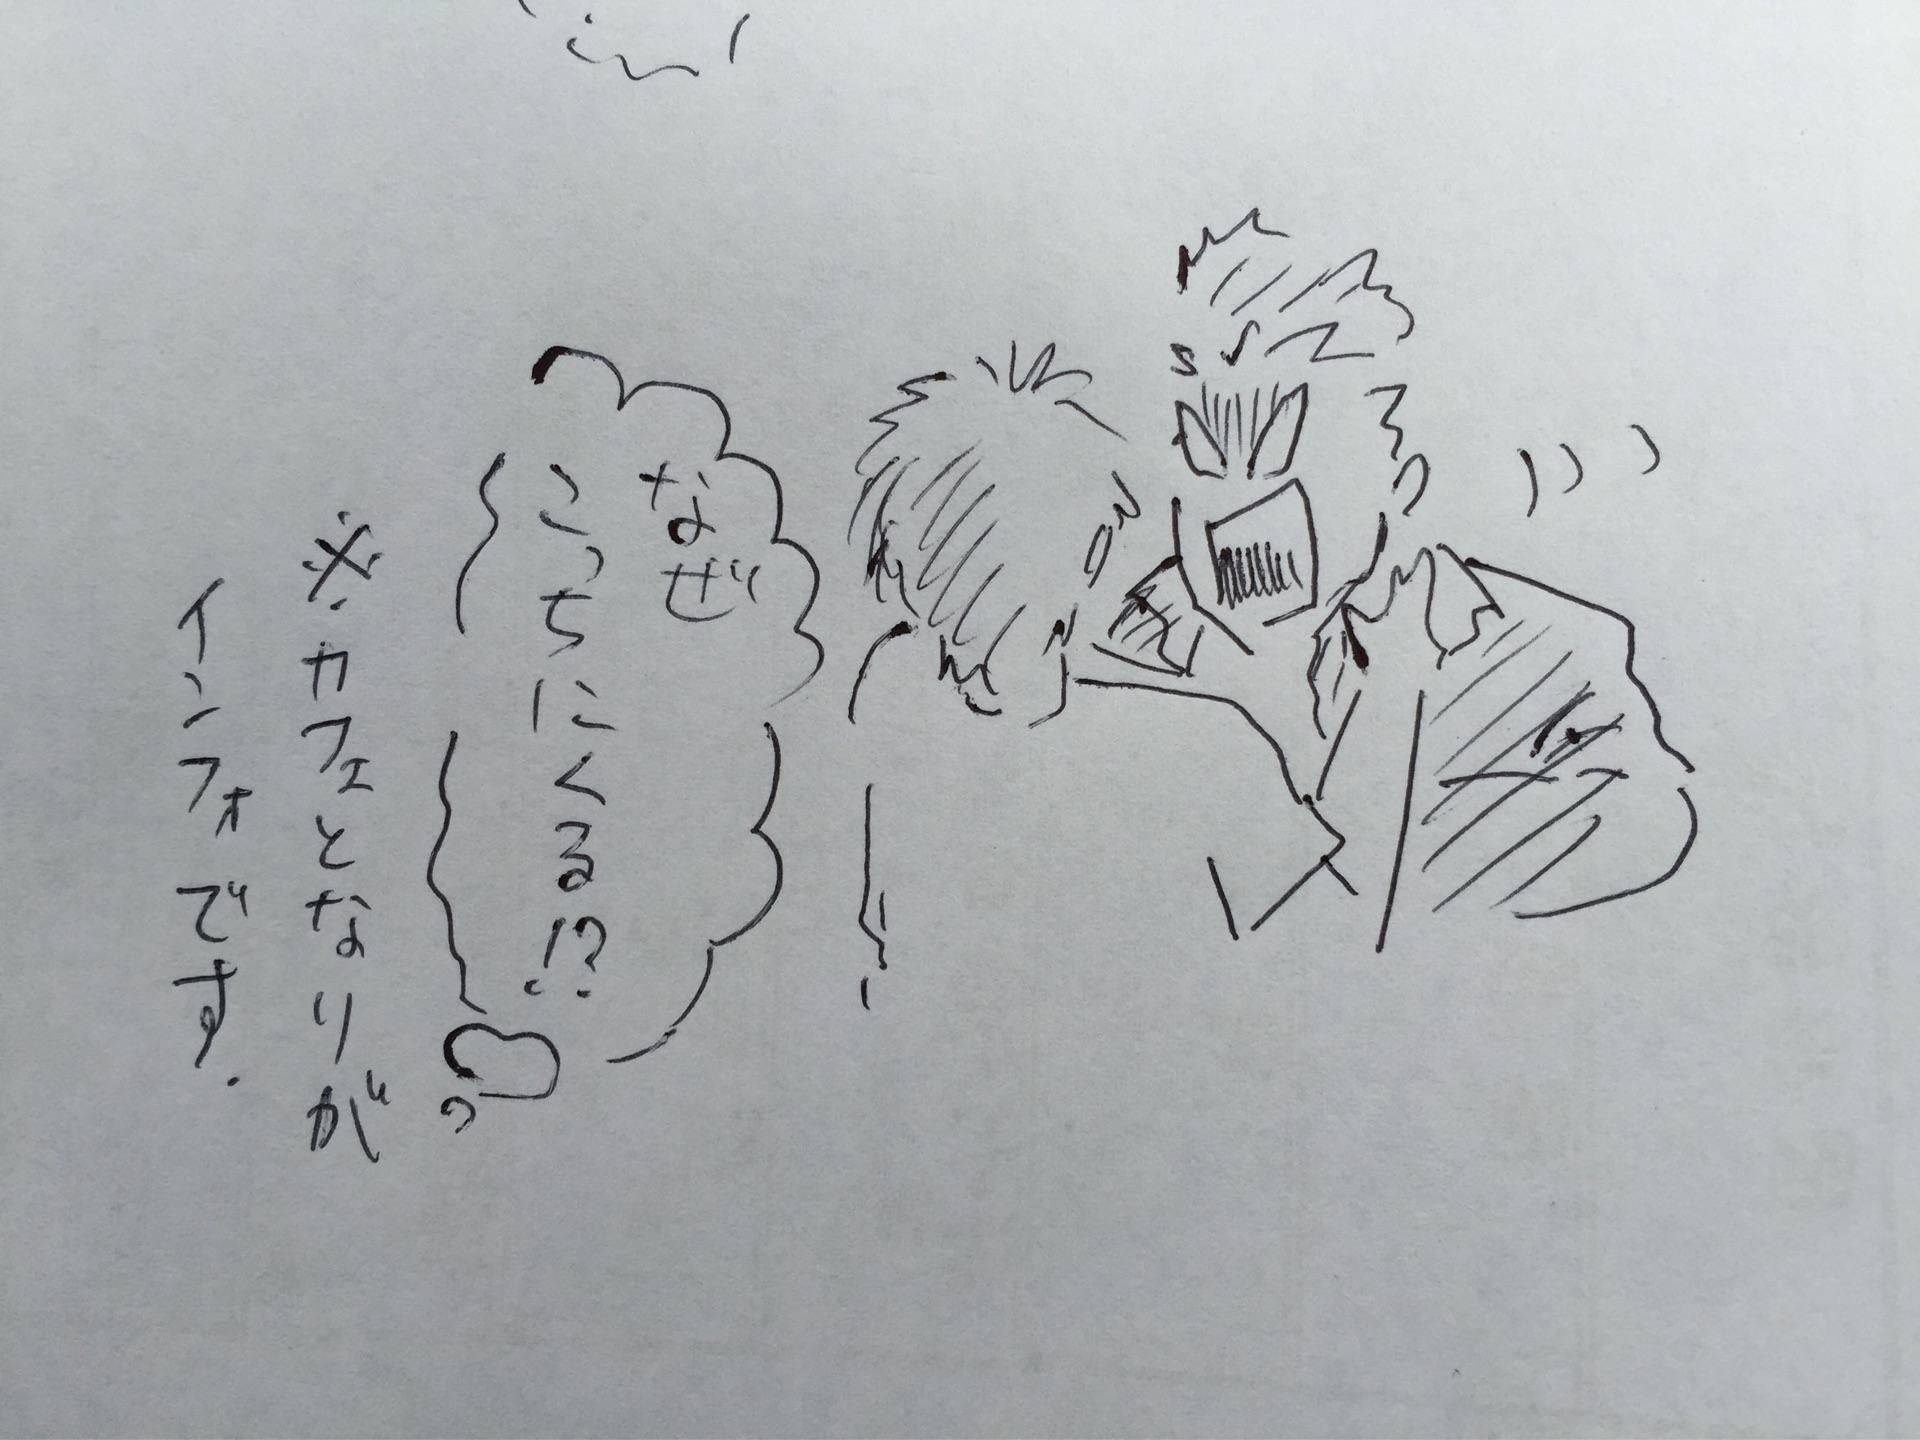 なぜ
こっちにくる!?
※カフェとなりが
インフォです.